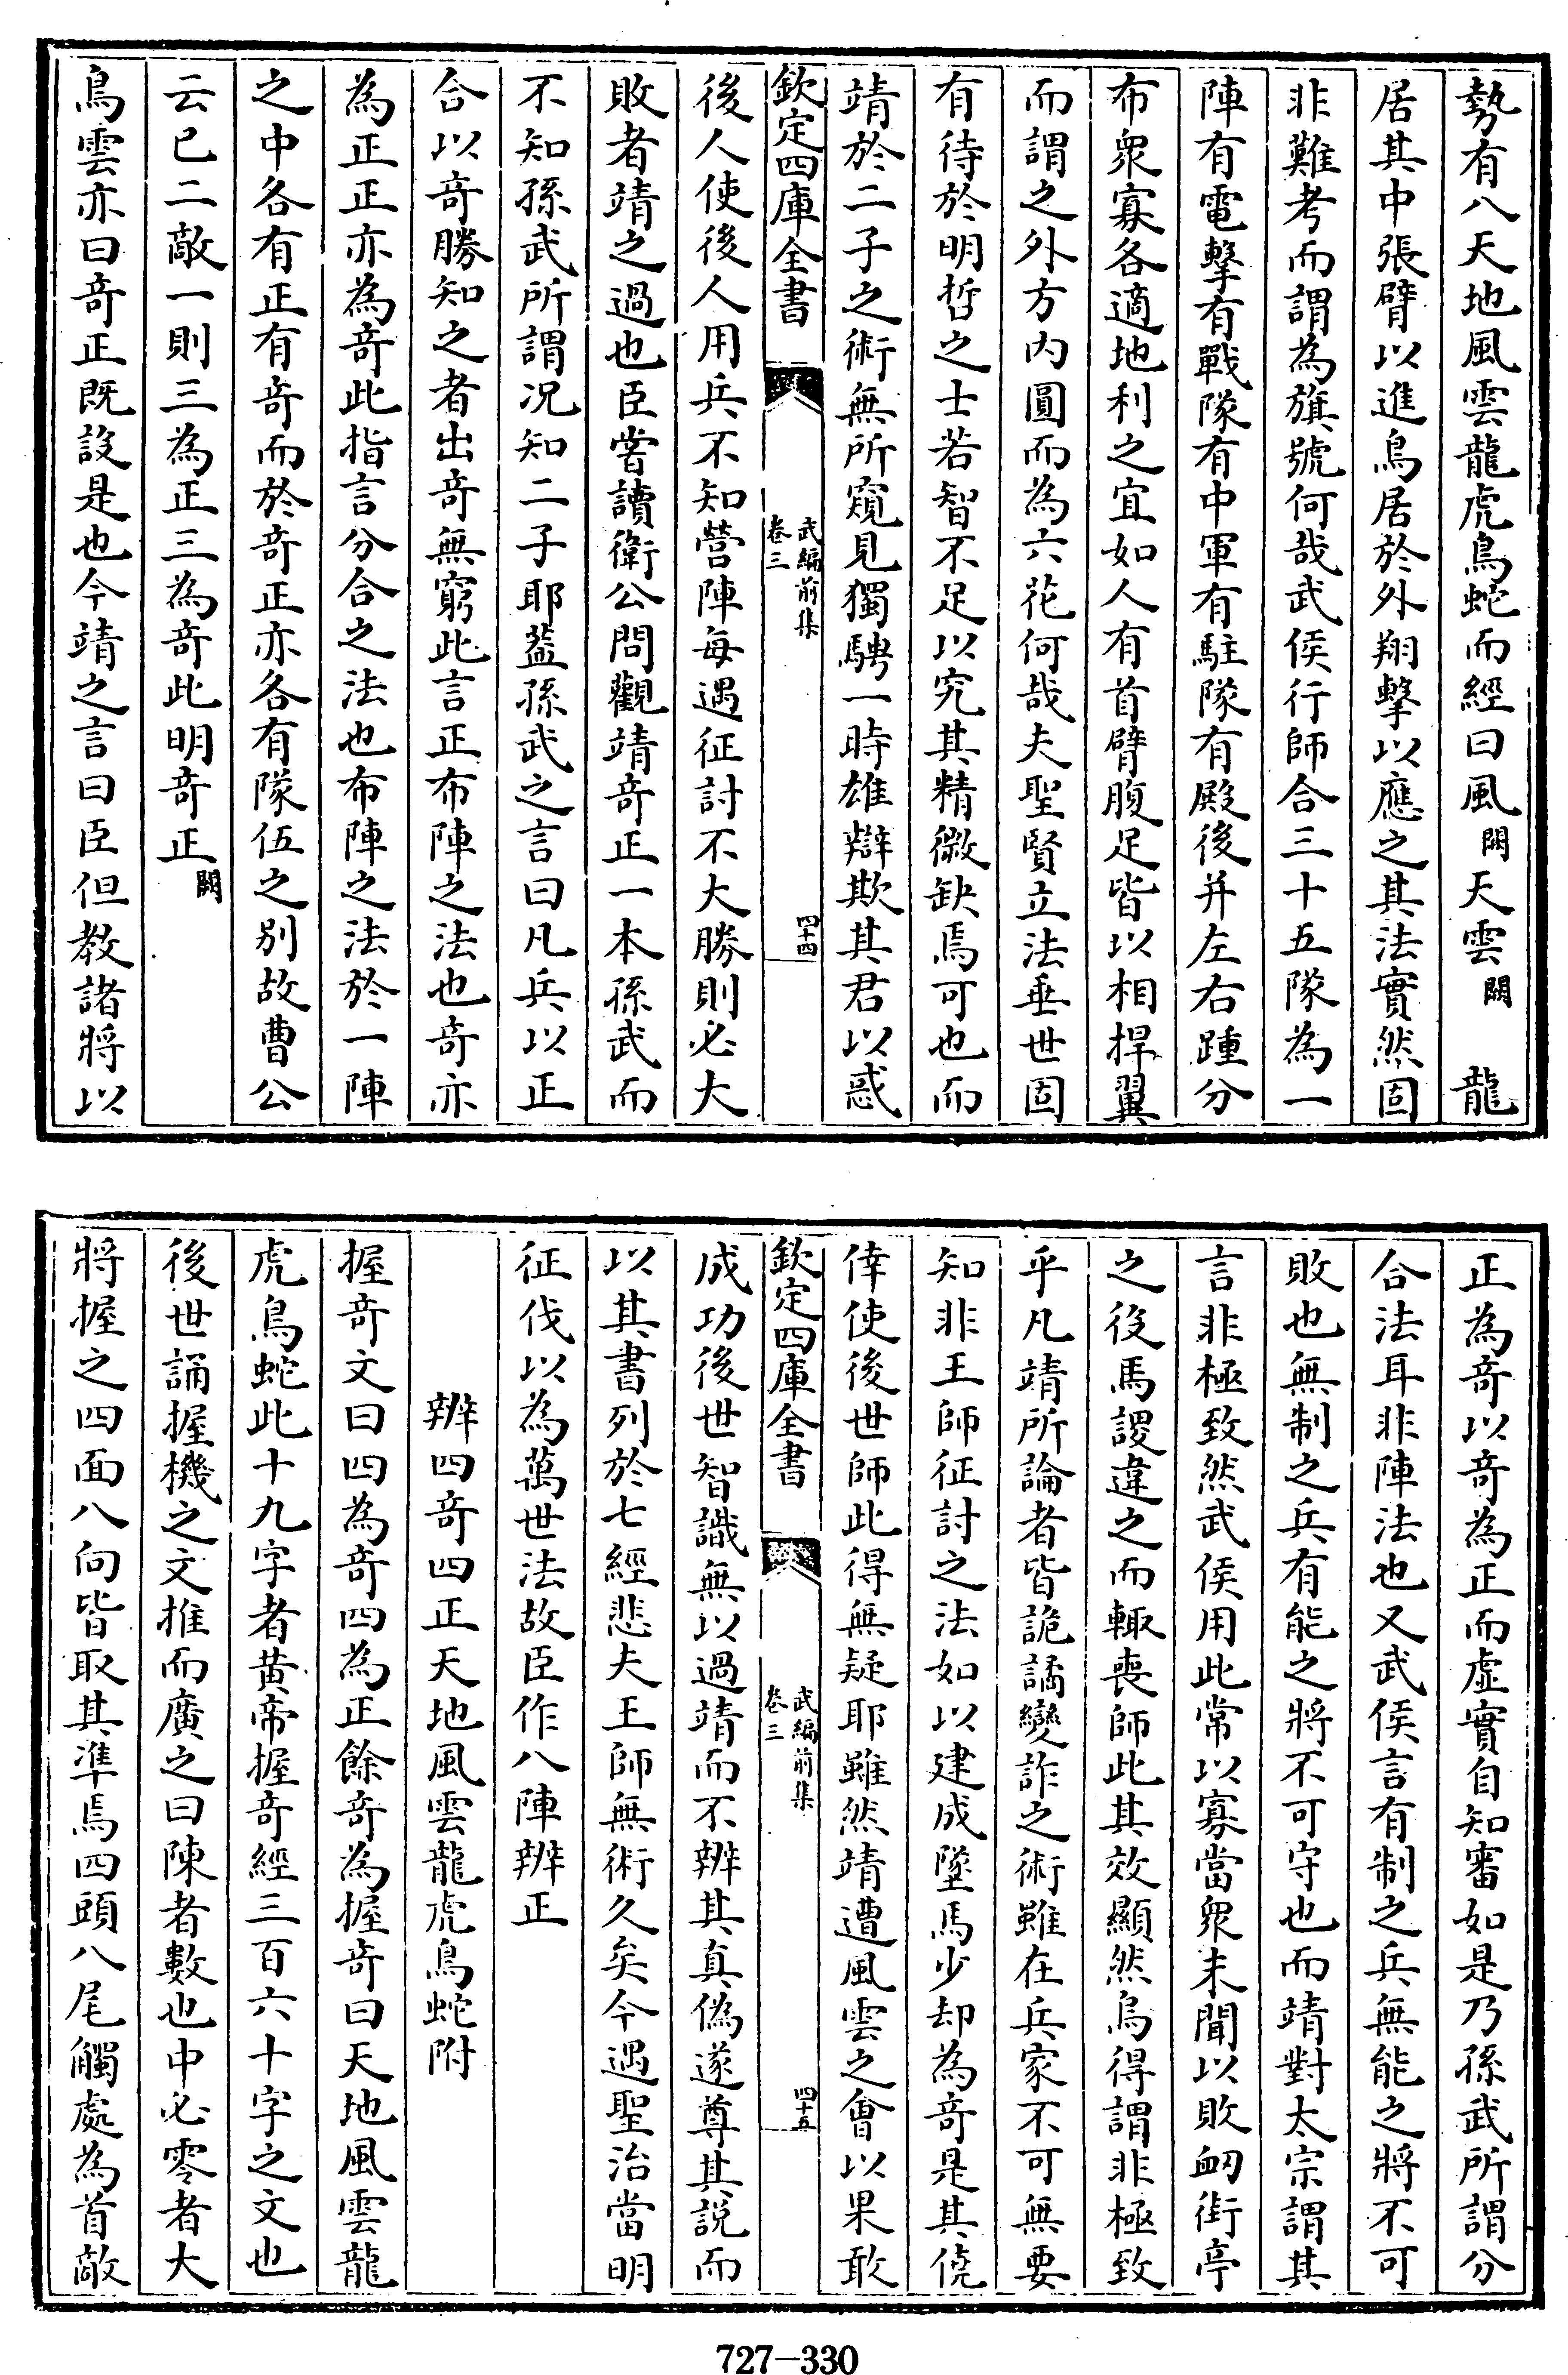 勢有八天地風雲龍虎鳥蛇而經曰風闕天雲闕　龍
居其中張臂以進鳥居於外翔擊以應之其法實然固
非難考而謂為旗號何哉武侯行師合三十五隊為一
陣有電擊有戰隊有中軍有駐隊有殿後并左右踵分
布衆寡各適地利之宜如人有首臂腹足皆以相捍翼
而謂之外方内圓而為六花何哉夫聖賢立法垂世固
有待於明哲之士若智不足以究其精微缺焉可也而
靖於二子之術無所窺見獨騁一時雄辯欺其君以惑
欽定四庫全書　武編前集卷三　四十四
後人使後人用兵不知營陣每遇征討不大勝則必大
敗者靖之過也臣嘗讀衛公問觀靖奇正一本孫武而
不知孫武所謂况知二子耶蓋孫武之言曰凡兵以正
合以奇勝知之者出奇無窮此言正布陣之法也奇亦
為正正亦為奇此指言分合之法也布陣之法於一陣
之中各有正有奇而於奇正亦各有隊伍之别故曹公
云已二敵一則三為正三為奇此明奇正闕
鳥雲亦曰奇正既設是也今靖之言曰臣但教諸將以
正為奇以奇為正而虚實自知審如是乃孫武所謂分
合法耳非陣法也又武侯言有制之兵無能之將不可
敗也無制之兵有能之將不可守也而靖對太宗謂其
言非極致然武侯用此常以寡當衆未聞以敗衂街亭
之役馬謖違之而輒喪師此其效顯然烏得謂非極致
乎凡靖所論者皆詭譎變詐之術雖在兵家不可無要
知非王師征討之法如以建成墜馬少却為奇是其僥
倖使後世師此得無疑耶雖然靖遭風雲之會以果敢
欽定四庫全書　武編前集卷三　四十五
成功後世智識無以過靖而不辨其真偽遂尊其説而
以其書列於七經悲夫王師無術久矣今遇聖治當明
征伐以為萬世法故臣作八陣辨正
辨四奇四正天地風雲龍虎鳥蛇附
握奇文曰四為奇四為正餘奇為握奇曰天地風雲龍
虎鳥蛇此十九字者黄帝握奇經三百六十字之文也
後世誦握機之文推而廣之曰陳者數也中必零者大
將握之四面八向皆取其準焉四頭八尾觸處為首敵
727-330